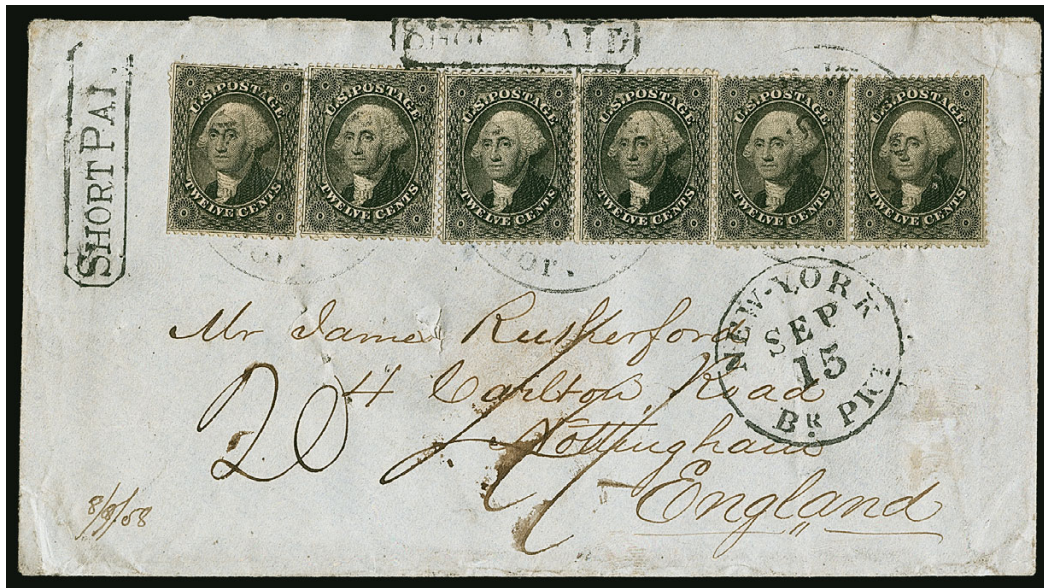 SHORT PAID
SHORT PAI
U.S. POSTAGE
TWELVE CENTS
U.S. POSTAGE
TWELVE CENTS
U.S. POSTAGE
TWELVE CENTS
U.S. POSTAGE
TWELVE CENTS
U.S. POSTAGE
TWELVE CENTS
U.S. POSTAGE
TWELVE CENTS
NEW-YORK
SEP
15
BR PKT
Mr James Rutherford
4 Carlton Road
Nottingham
England
20
8/9/58